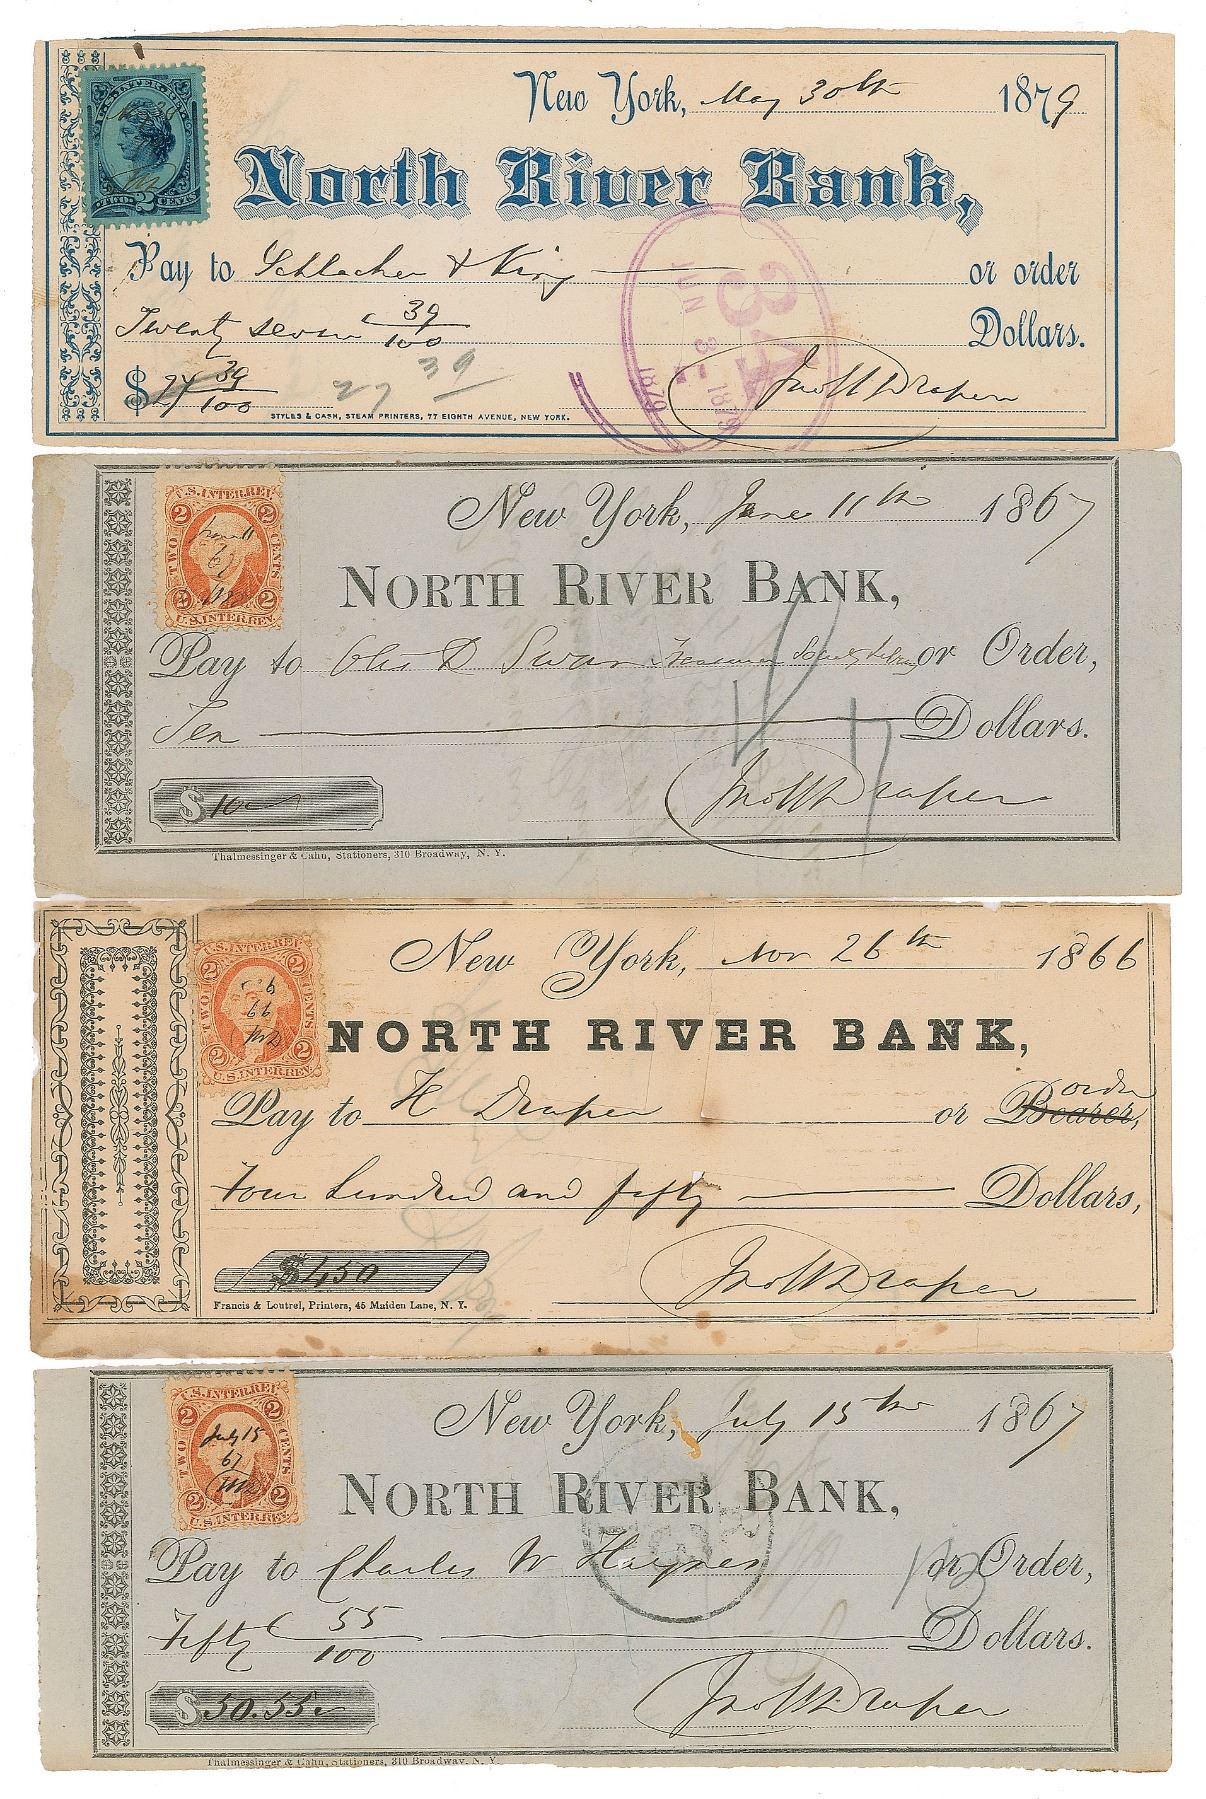 New York, May 30th 1879
North River Bank,
Pay to Schlacher & King or order
Twenty seven 39/100 Dollars.
$27 39/100 27 39
STYLES & CASH, STEAM PRINTERS, 77 EIGHTH AVENUE, NEW YORK.
Jno W Draper
TWO 2 CENTS
34
JUN 3-1879
1879
U.S. INTER. REV.
2 TWO CENTS 2
June 11
67
2 2
U.S. INTER. REV.
New York, June 11th 1867
NORTH RIVER BANK,
Pay to Otis D Swan Treasurer or Order,
Ten Dollars.
$10
Jno W Draper
Thalmessinger & Cahn, Stationers, 310 Broadway, N. Y.
U.S. INTER. REV.
2 TWO CENTS 2
66
2 2
U.S. INTER. REV.
New York, Nov 26th 1866
NORTH RIVER BANK,
Pay to H Draper or Bearer, order
Four hundred and fifty Dollars,
$450
Jno W Draper
Francis & Loutrel, Printers, 45 Maiden Lane, N. Y.
U.S. INTER. REV.
2 TWO CENTS 2
July 15
67
2 2
U.S. INTER. REV.
New York, July 15th 1867
NORTH RIVER BANK,
Pay to Charles W Haynes or Order,
Fifty 55/100 Dollars.
$50.55
Jno W Draper
Thalmessinger & Cahn, Stationers, 310 Broadway, N. Y.